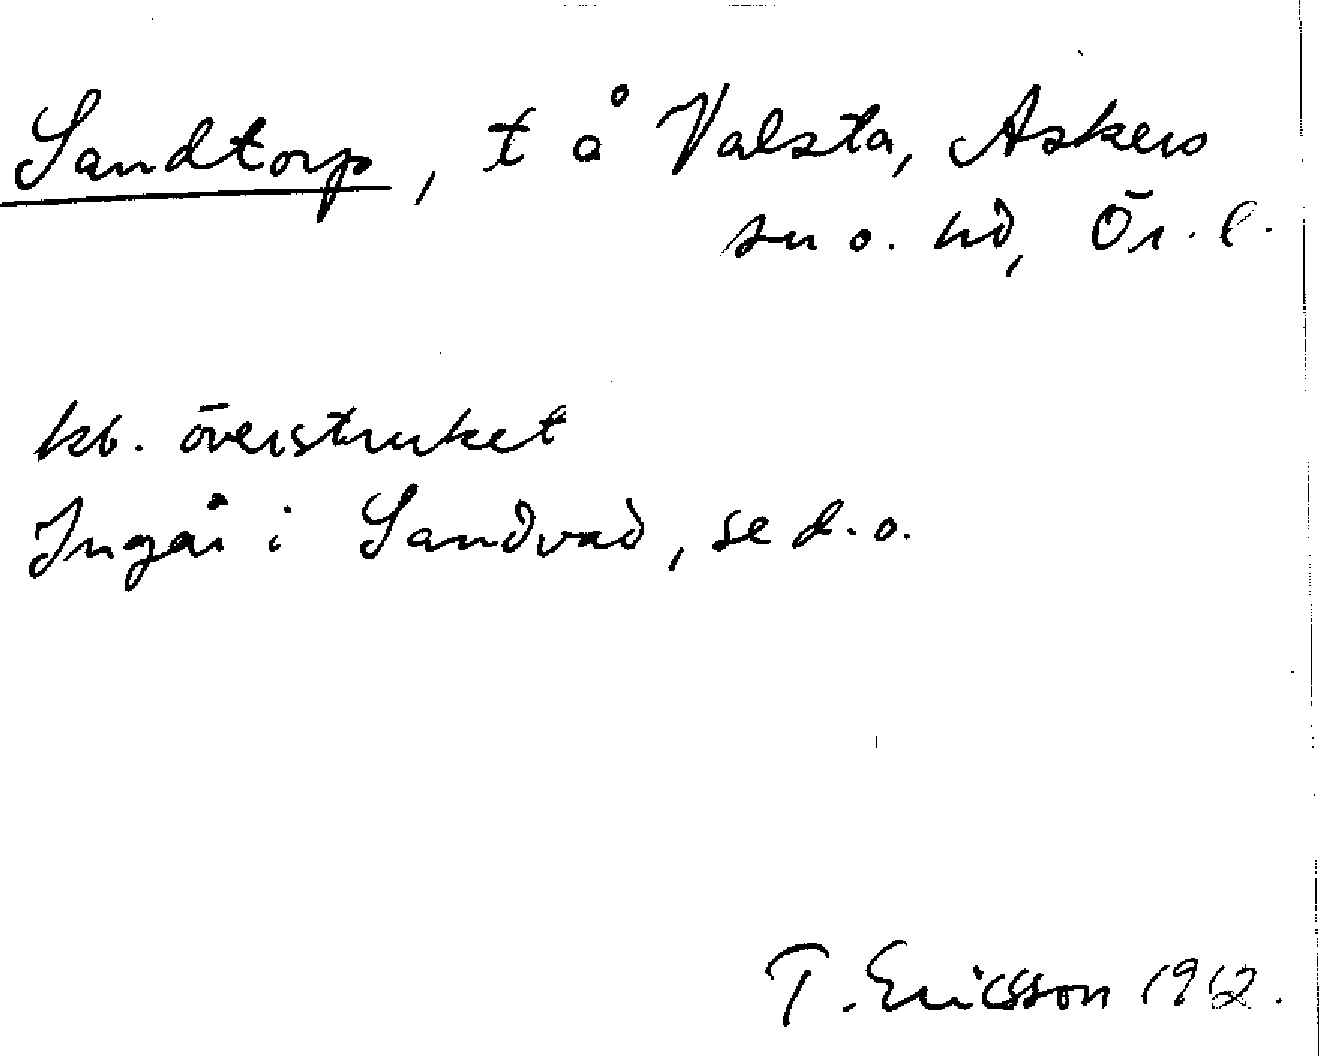 Sandtorp, t å Valsta, Askers
sn o. hd, Ör. l.
kb. överstruket
Ingår i Sandvad, se d.o.
T. Ericsson 1962.